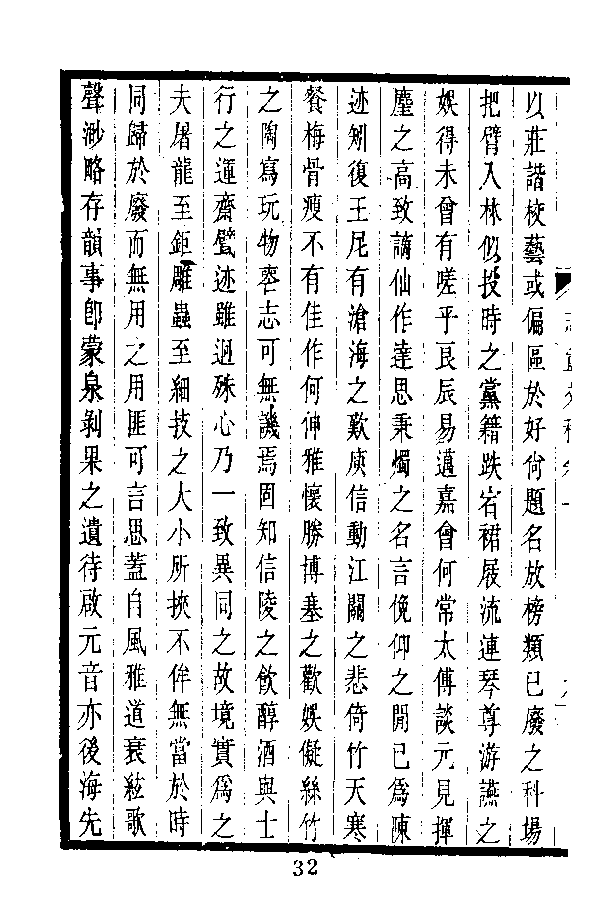 以莊諧校藝或偏區於好尙題名放榜類已廢之科場
把臂入林似投時之黨籍跌宕裙屐流連琴尊游讌之
娛得未曾有嗟乎良辰易邁嘉會何常太傅談元見揮
麈之高致謫仙作達思秉燭之名言俛仰之閒已爲陳
迹矧復王尼有滄海之歎庾信動江關之悲倚竹天寒
餐梅骨瘦不有佳作何伸雅懷勝博塞之歡娛儗絲竹
之陶寫玩物喪志可無譏焉固知信陵之飮醇酒與士
行之運齋甓迹雖迥殊心乃一致異同之故境實爲之
夫屠龍至鉅雕蟲至細技之大小所挾不侔無當於時
同歸於廢而無用之用匪可言思蓋自風雅道衰絃歌
聲渺略存韻事卽蒙泉剝果之遺待啟元音亦後海先
32